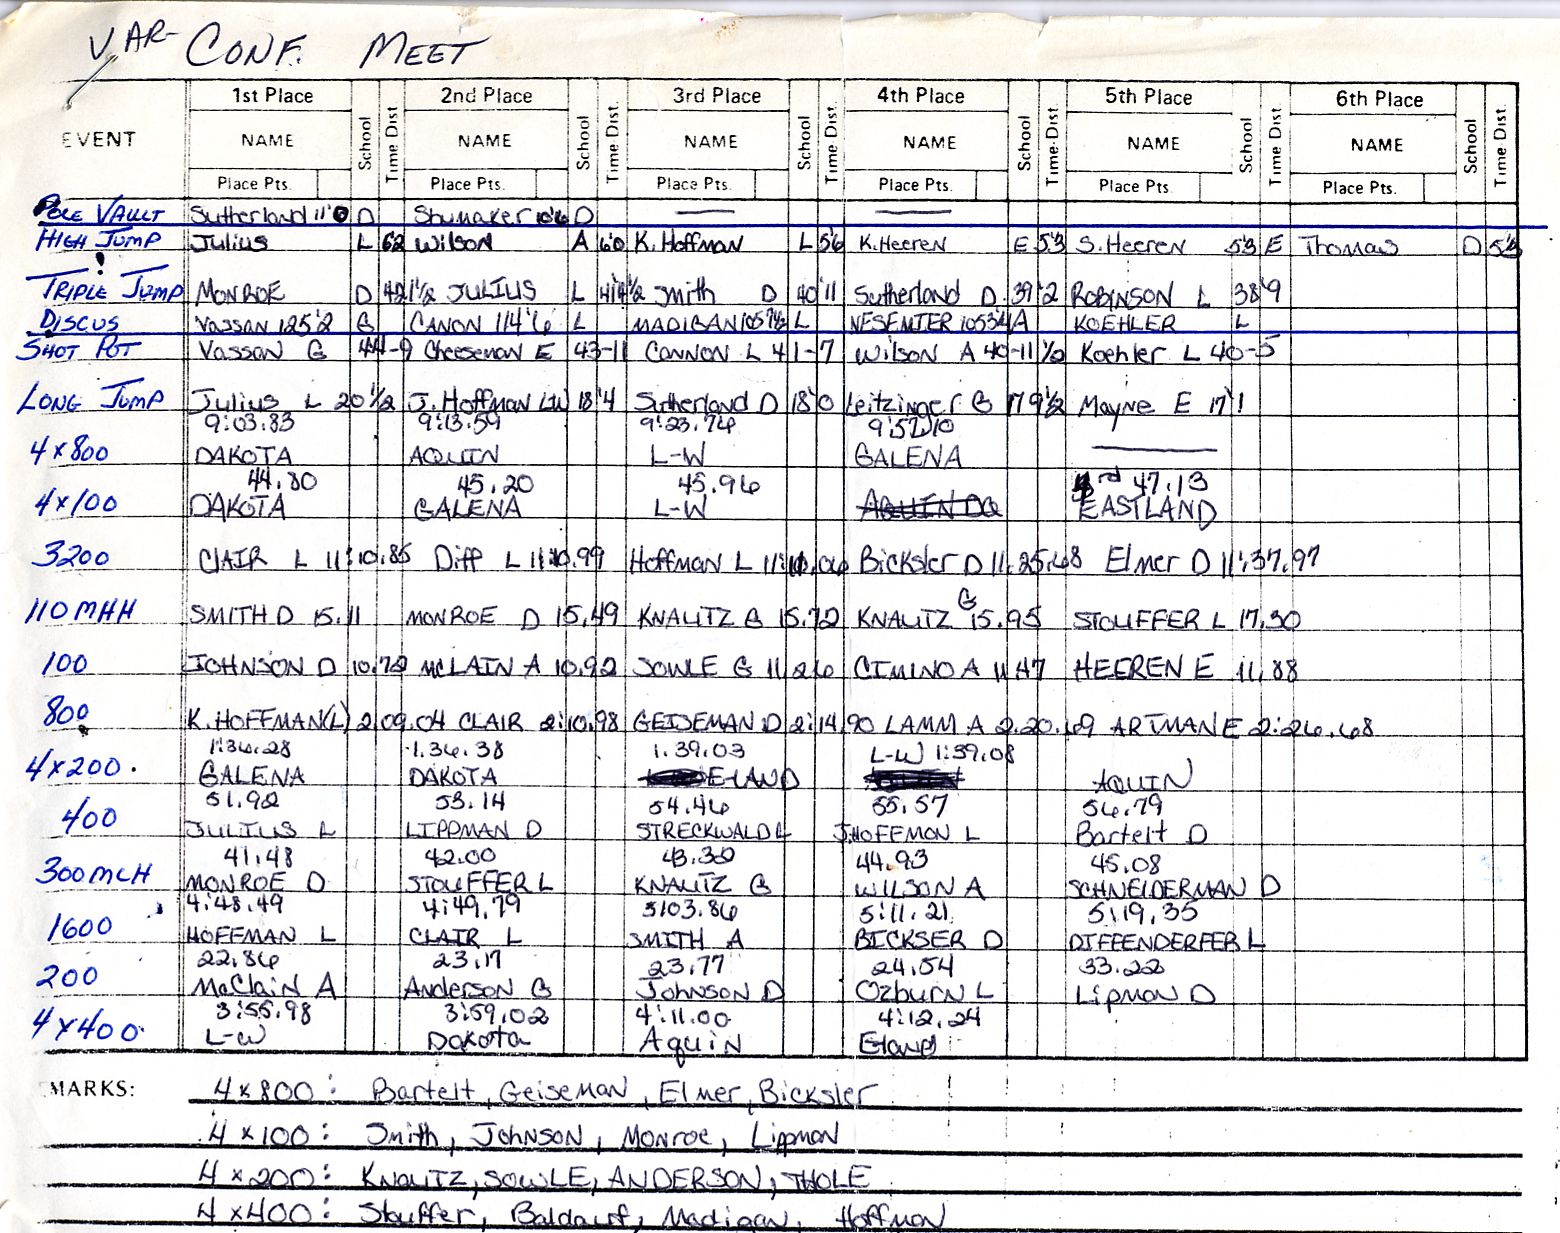 VAR- CONF. MEET
1st Place School Time Dist. 2nd Place School Time Dist. 3rd Place School Time Dist. 4th Place School Time Dist. 5th Place School Time Dist. 6th Place School Time Dist.
EVENT NAME NAME NAME NAME NAME NAME
Place Pts. Place Pts. Place Pts. Place Pts. Place Pts. Place Pts.
POLE VAULT Sutherland 11'0 D Shumaker 10'6 D
HIGH JUMP Julius L 6'2 Wilson A 6'0 K. Hoffman L 5'6 K. Heeren E 5'3 S. Heeren 5'3 E Thomas D 5'3
TRIPLE JUMP MONROE D 42'1½ JULIUS L 41'4½ Smith D 40'11 Sutherland D 39'2 ROBINSON L 38'9
DISCUS VASSAN 125'2 G CANON 114'6 L MADIGAN 105'7½ L NESEMIER 105'3¼ A KOEHLER L
SHOT POT Vassan G 44-9 Cheeseman E 43-11 CANNON L 41-7 Wilson A 40-11½ Koehler L 40-5
LONG JUMP Julius L 20'½ J. Hoffman LW 18'4 Sutherland D 18'0 Leitzinger G 17'9½ Mayne E 17'1
9:03.83 9:13.59 9:23.76 9:57.10
4x800 DAKOTA AQUIN L-W GALENA
44.80 45.20 45.96 47.13
4x100 DAKOTA GALENA L-W AQUIN DQ EASTLAND
3200 CLAIR L 11:10.85 Diff L 11:10.99 Hoffman L 11:11.06 Bicksler D 11.25.68 Elmer D 11:37.97
110 MHH SMITH D 15.11 MONROE D 15.49 KNAUTZ G 15.72 KNAUTZ G 15.95 STOUFFER L 17.30
100 JOHNSON D 10.72 MCLAIN A 10.92 SOWLE G 11.26 CIMINO A 11.47 HEEREN E 11.88
800 K. HOFFMAN (L) 2.09.04 CLAIR 2:10.98 GEISEMAN D 2:14.90 LAMM A 2.20.69 ARTMAN E 2:26.68
1:36.28 1.36.38 1.39.03 L-W 1:39.08
4x200. GALENA DAKOTA E-LAND AQUIN
51.92 53.14 54.46 55.57 56.79
400 JULIUS L LIPPMAN D STRECKWALD L J.HOFFMON L Bartelt D
41.48 42.00 43.30 44.93 45.08
300 MLH MONROE D STOUFFER L KNAUTZ G WILSON A SCHNEIDERMAN D
4:48.49 4:49.79 5:03.86 5:11.21 5:19.35
1600 HOFFMAN L CLAIR L SMITH A BICKSER D DIFFENDERFER L
22.86 23.17 23.77 24.54 33.22
200 McClain A Anderson G Johnson D Ozburn L Lipmon D
3:55.98 3:59.02 4:11.00 4:12.24
4x400 L-W Dakota Aquin Eland
MARKS: 4x800: Bartelt, Geiseman, Elmer, Bicksler
4x100: Smith, Johnson, Monroe, Lippman
4x200: KNAUTZ, SOWLE, ANDERSON, THOLE
4x400: Stouffer, Baldauf, Madigan, Hoffman